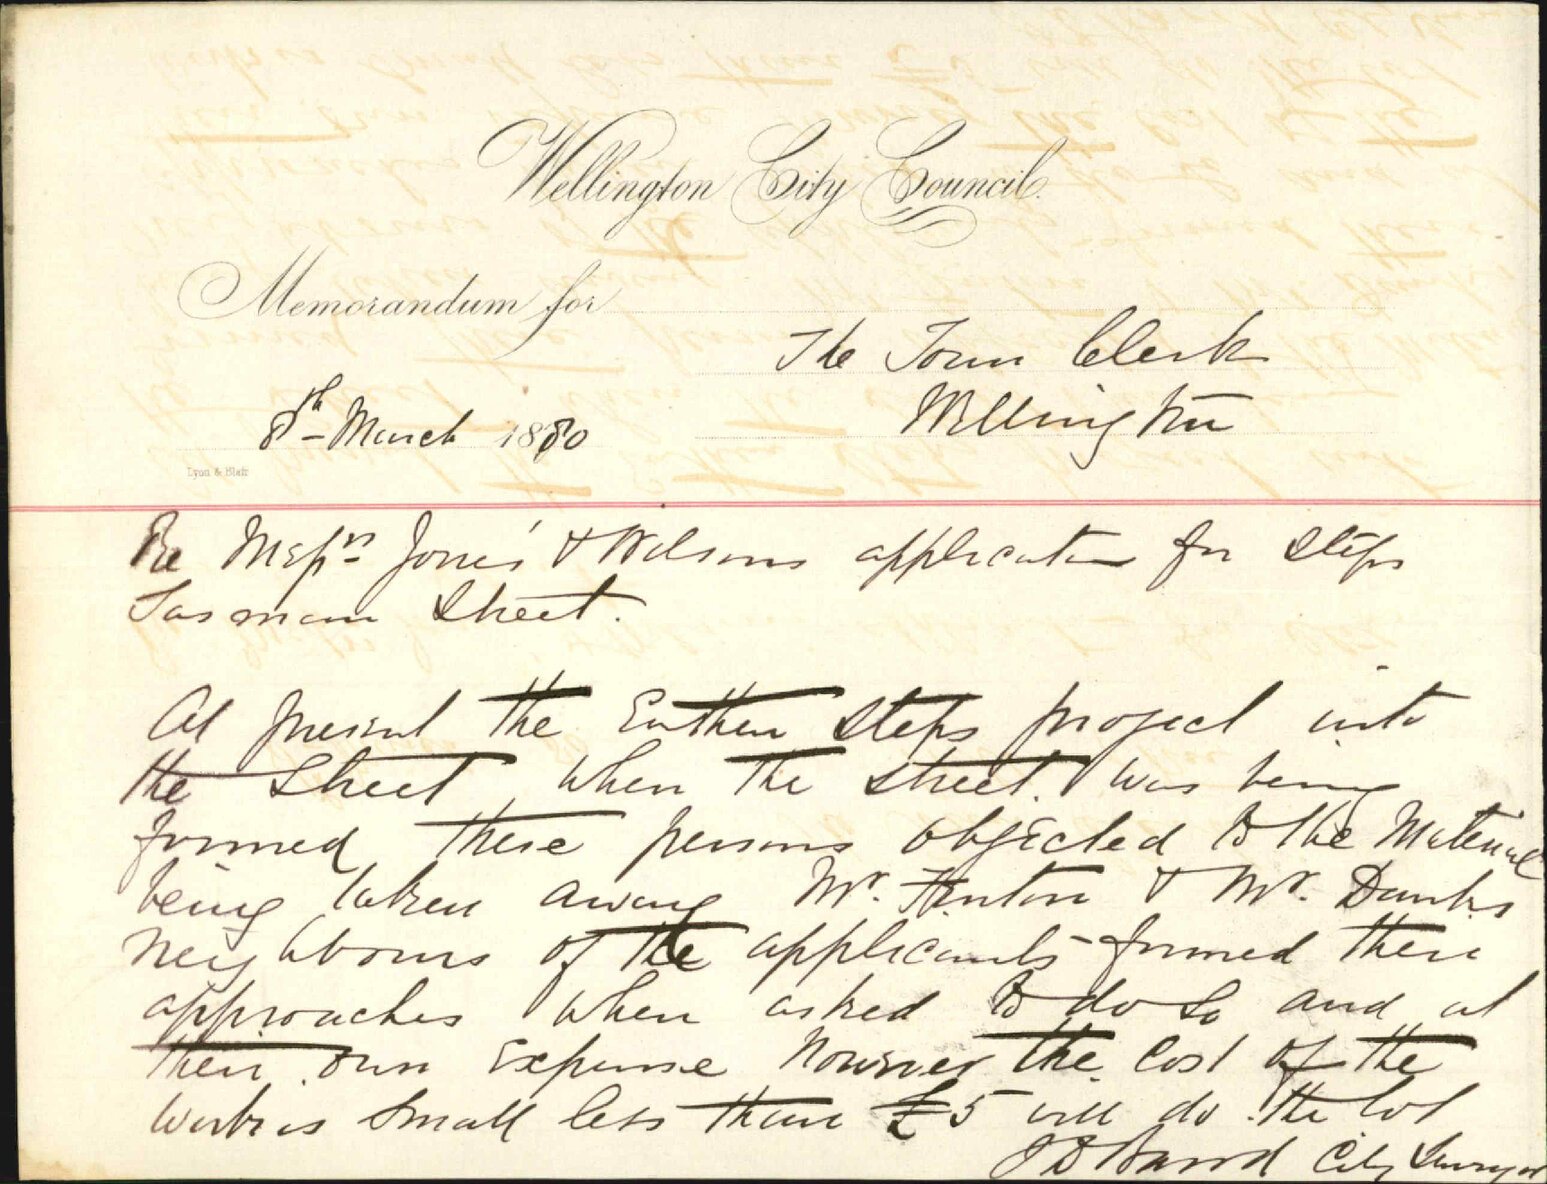 Wellington City Council.
Memorandum for
The Town Clerk
Wellington
8th March 1880
Lyon & Blair
Re Messrs Jones' & Wilsons application for Steps
Tasman Street.
At present the Earthen Steps project into
the Street when the street was being
formed these persons objected to the Material
being taken away Mr. & Mr. Danks
neighbours of the applicants formed there
approaches when asked to do so and at
their own expense however the cost of the
work is small less than £5 will do the lot
J D Baird City Surveyor